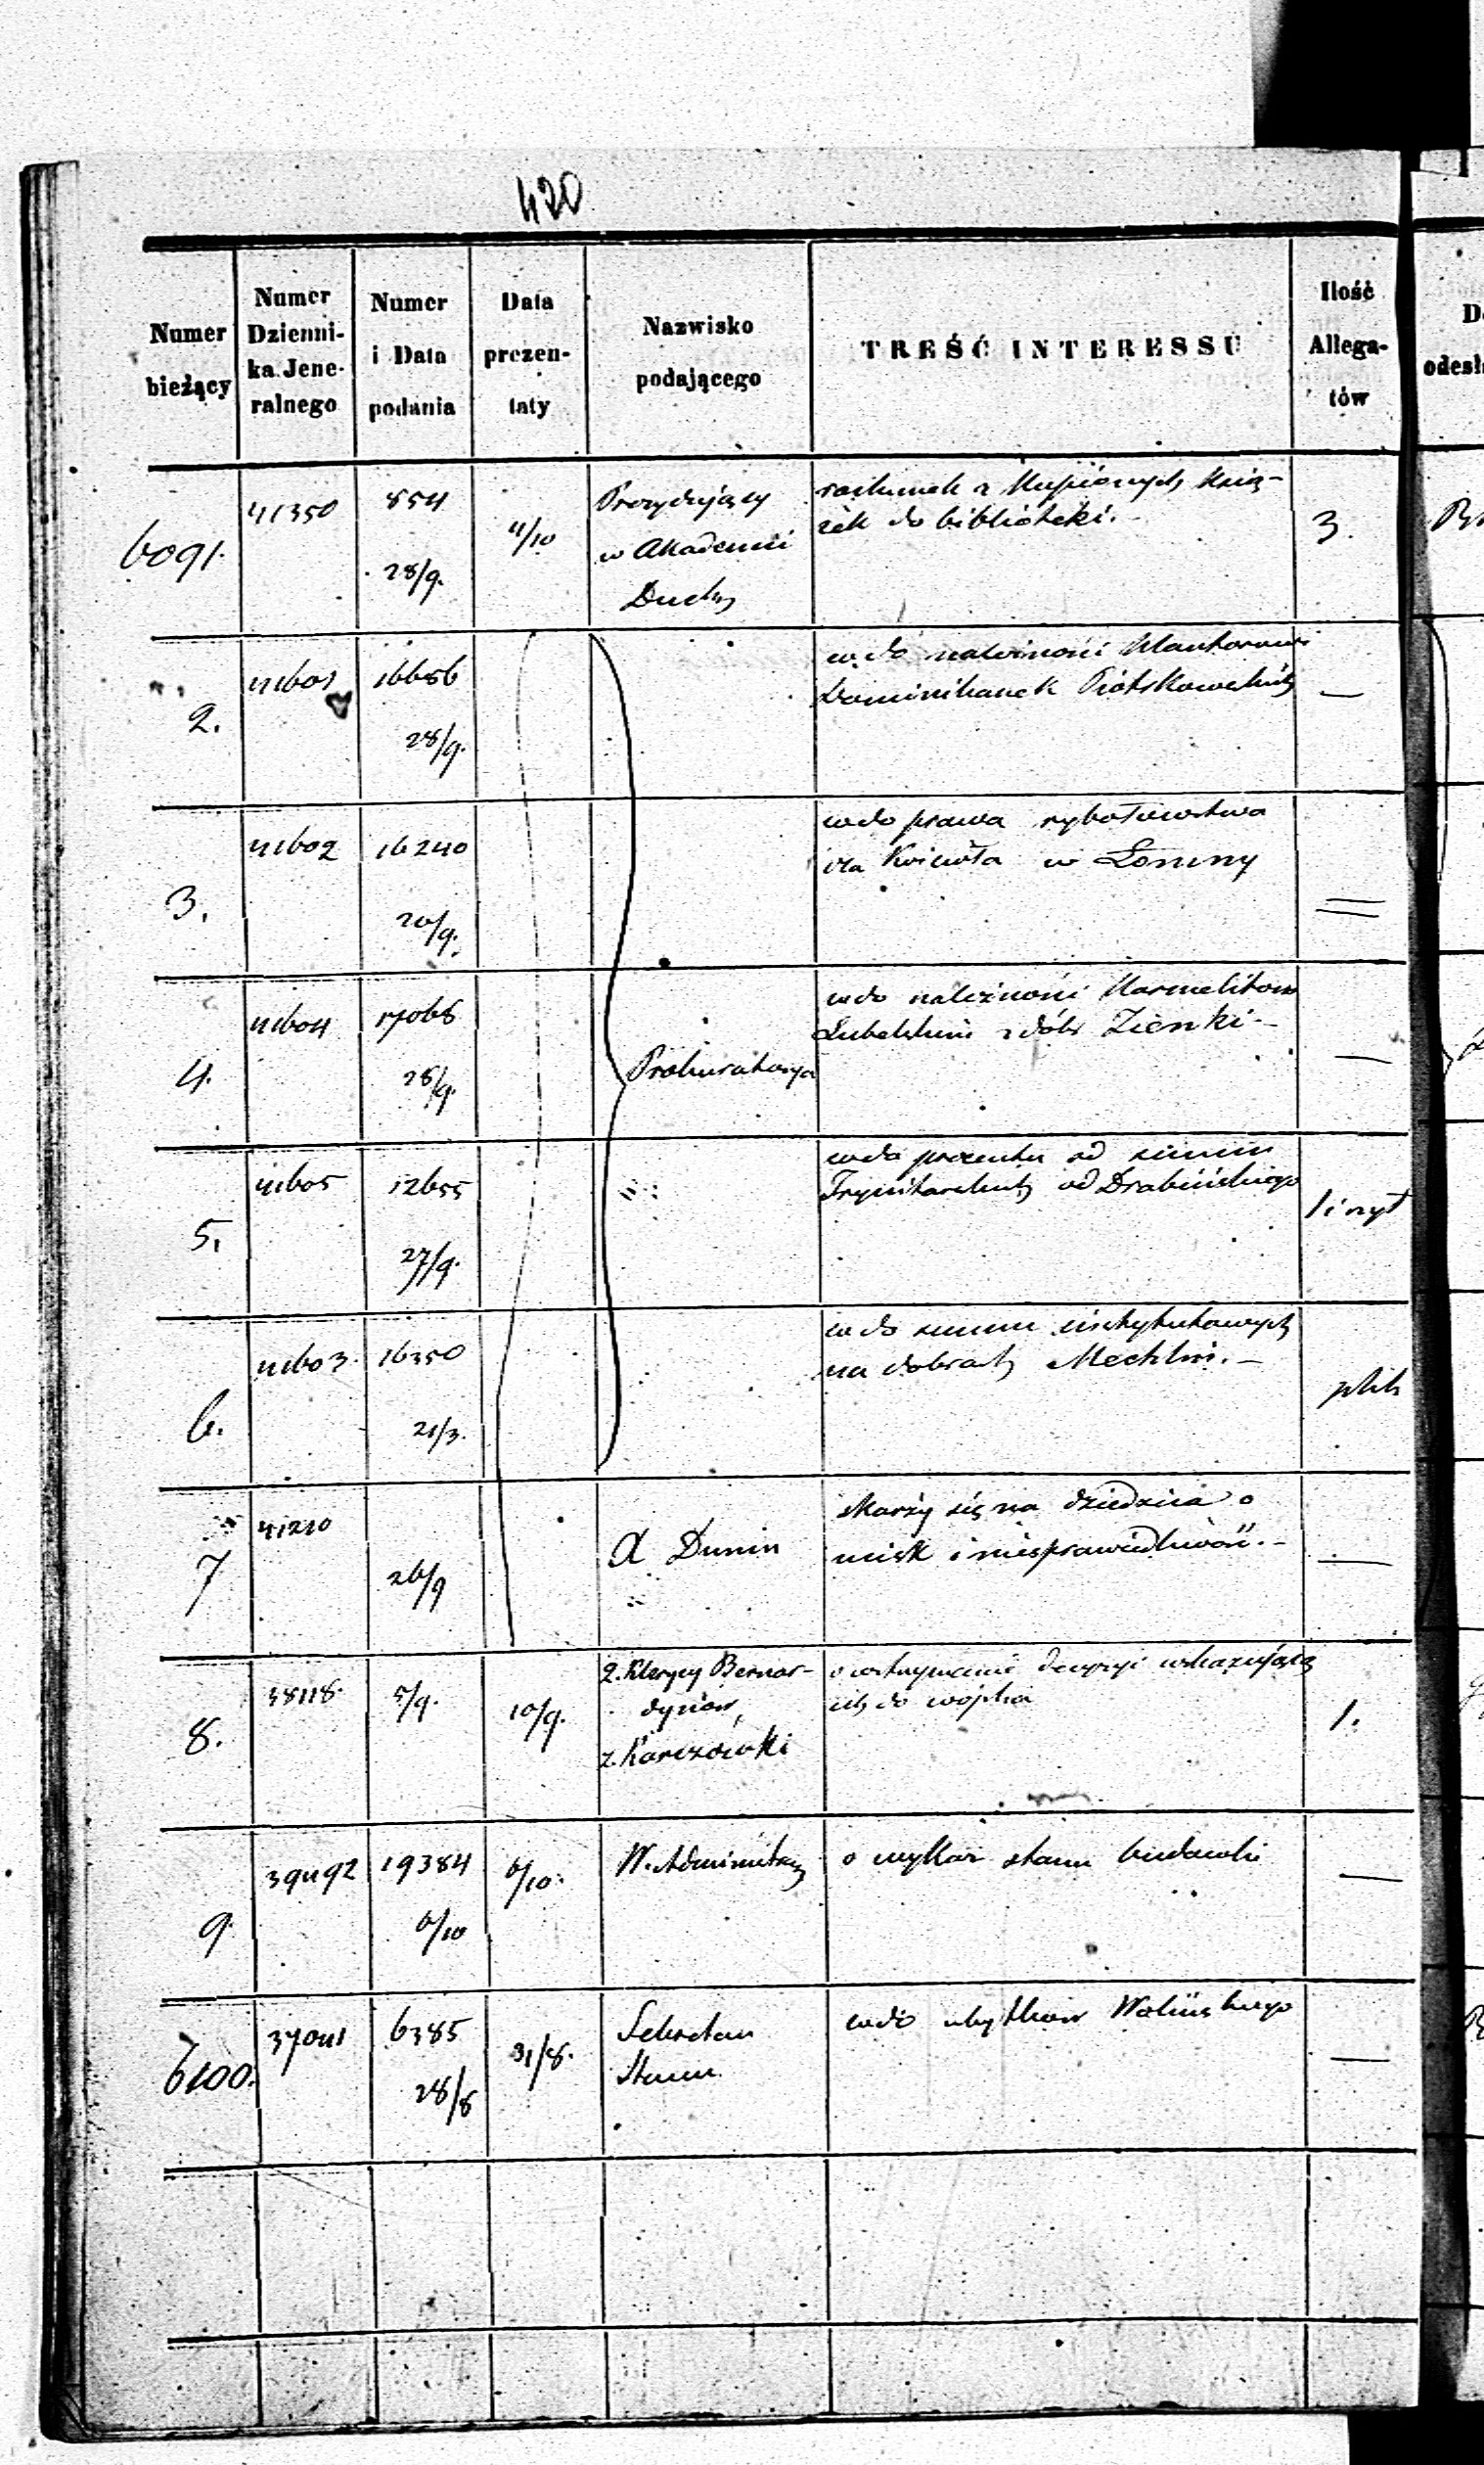 420
Numer bieżący
Numer Dzienni-ka Jene-ralnego
Numer i Data podania
Data prezen-taty
Nazwisko podającego
TREŚĆ INTERESSU
Ilość Allega-tów
6091. 41350 854 28/9. 4/10 Prezydujący rachunek z kupionych książ- 3.
w Akademii żek do biblioteki.
Duchy
2. 41601 16686 28/9. wdo należności klasztorowi —
Dominikanek Piotrkowskich
3. 41602 16240 20/9. wdo prawa rybołowstwa
dla Kościoła w Łomny
4. 41604 17068 28/9. Prokuratorya wdo należności Karmelitow —
Lubelskim z dóbr Zienki —
5. 41605 12655 27/9. wdo procentu od summ
Trynitarskich od Drabińskiego
6. 41603. 16350 21/3. wdo summ instytutowych plik
na dobrach Mechlin. —
7 41210 26/9 A Dunin skarży się na dziedzica o —
ucisk i niesprawiedliwość. —
8. 38118. 5/9. 10/9. 2. Klerycy Bernar- o wstrzymanie decyzyi wskazującej 1.
dynów, ich do wojska
z Karczówki
9. 39492 19384 6/10 6/10. W. Administrac o wykaz stanu budowli —
6100. 37041 6385 28/8 31/8. Sekretarz wdo użytkow Wolińskiego —
Stanu